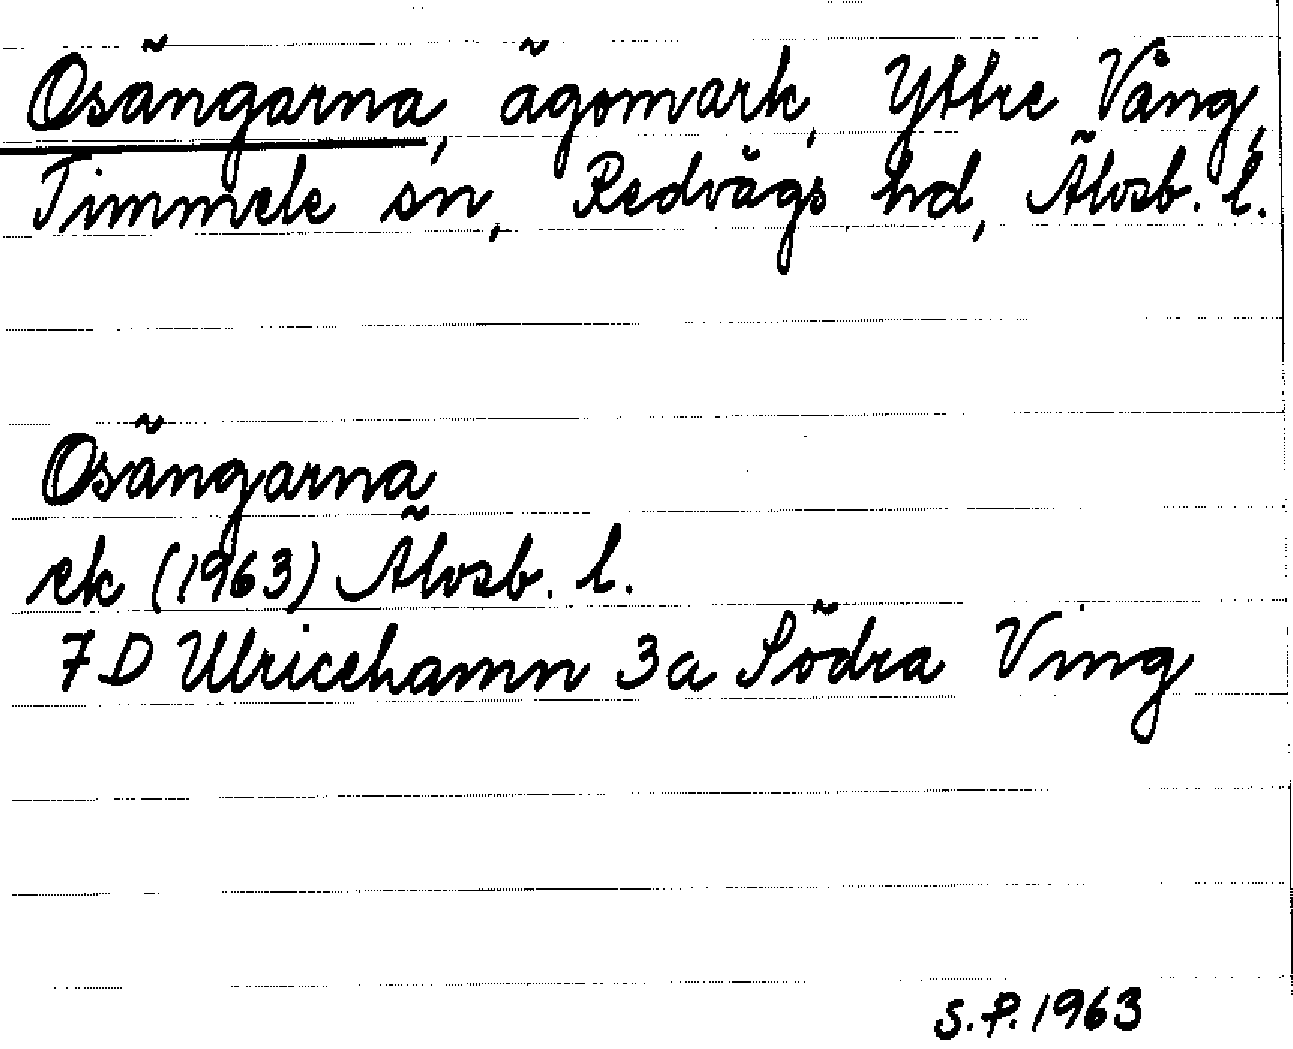 Osängarna, ägomark, Yttre Vång,
Timmele sn, Redvägs hd, Älvsb. l.
Osängarna
ek (1963) Älvsb. l.
7D Ulricehamn 3a Södra Ving
S.P. 1963